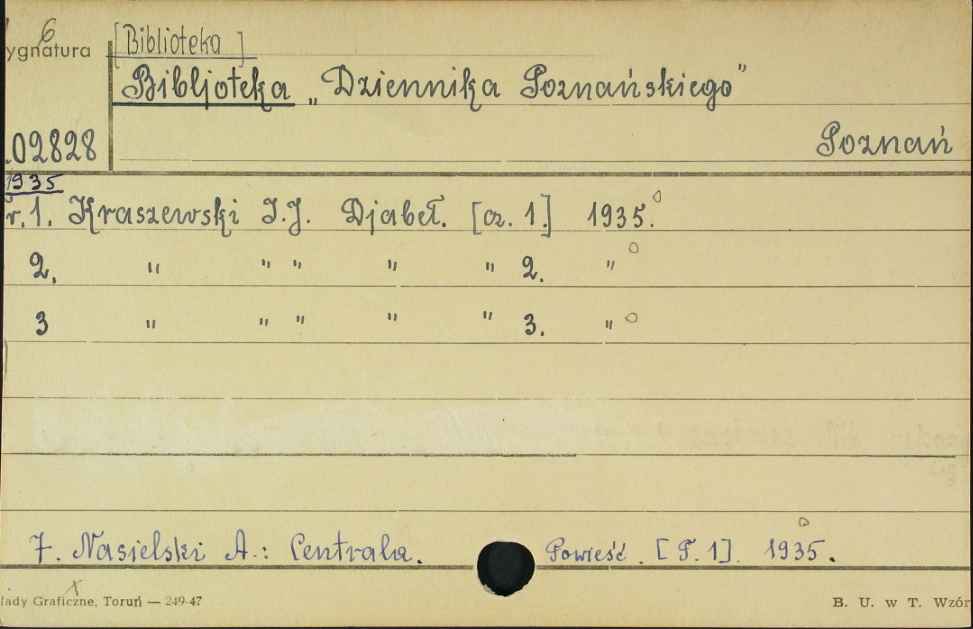 6
ygnatura [Biblioteka]
Bibljoteka „Dziennika Poznańskiego"
02828 Poznań
1935
r. 1. Kraszewski I.J. Djabeł. [cz. 1] 1935.
2. " " " " " 2. "
3 " " " " " 3. "
7. Nasielski A.: Centrala. Powieść. [T. 1]. 1935.
x
łady Graficzne, Toruń — 249-47 B. U. w T. Wzór